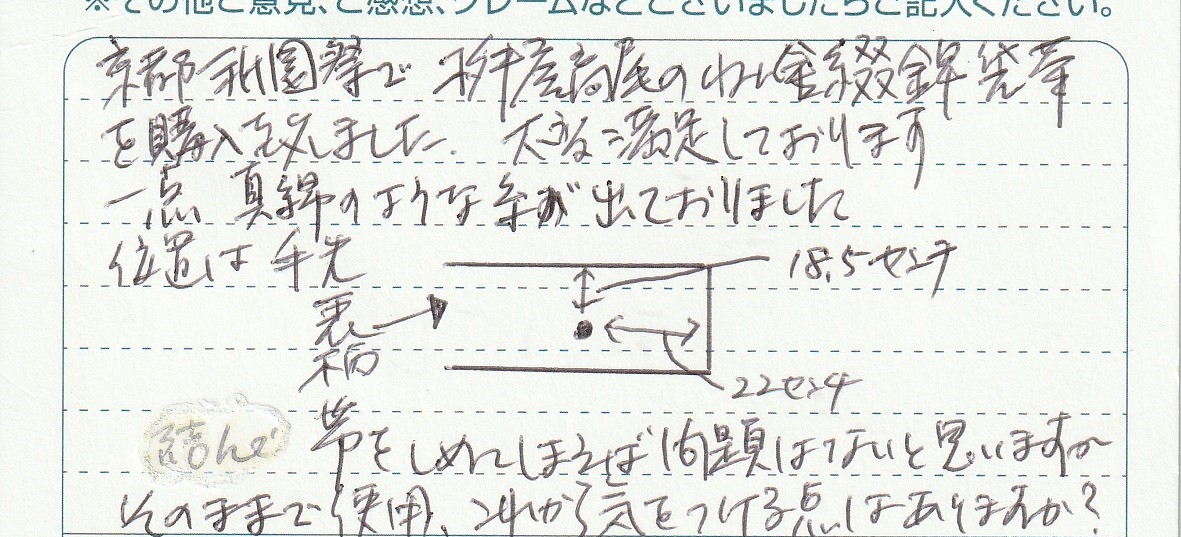 ※その他ご意見、ご感想、クレームなどございましたらご記入ください。
京都祇園祭で 桝屋高尾のねん金綴錦袋帯
を購入を致しました。大変満足しております
一点 真綿のような糸が出ておりました
位置は手先
18.5センチ
表
柄
22センチ
結んで
帯をしめてしまえば問題はないと思いますが
そのままで使用、これから気をつける点はありますか?